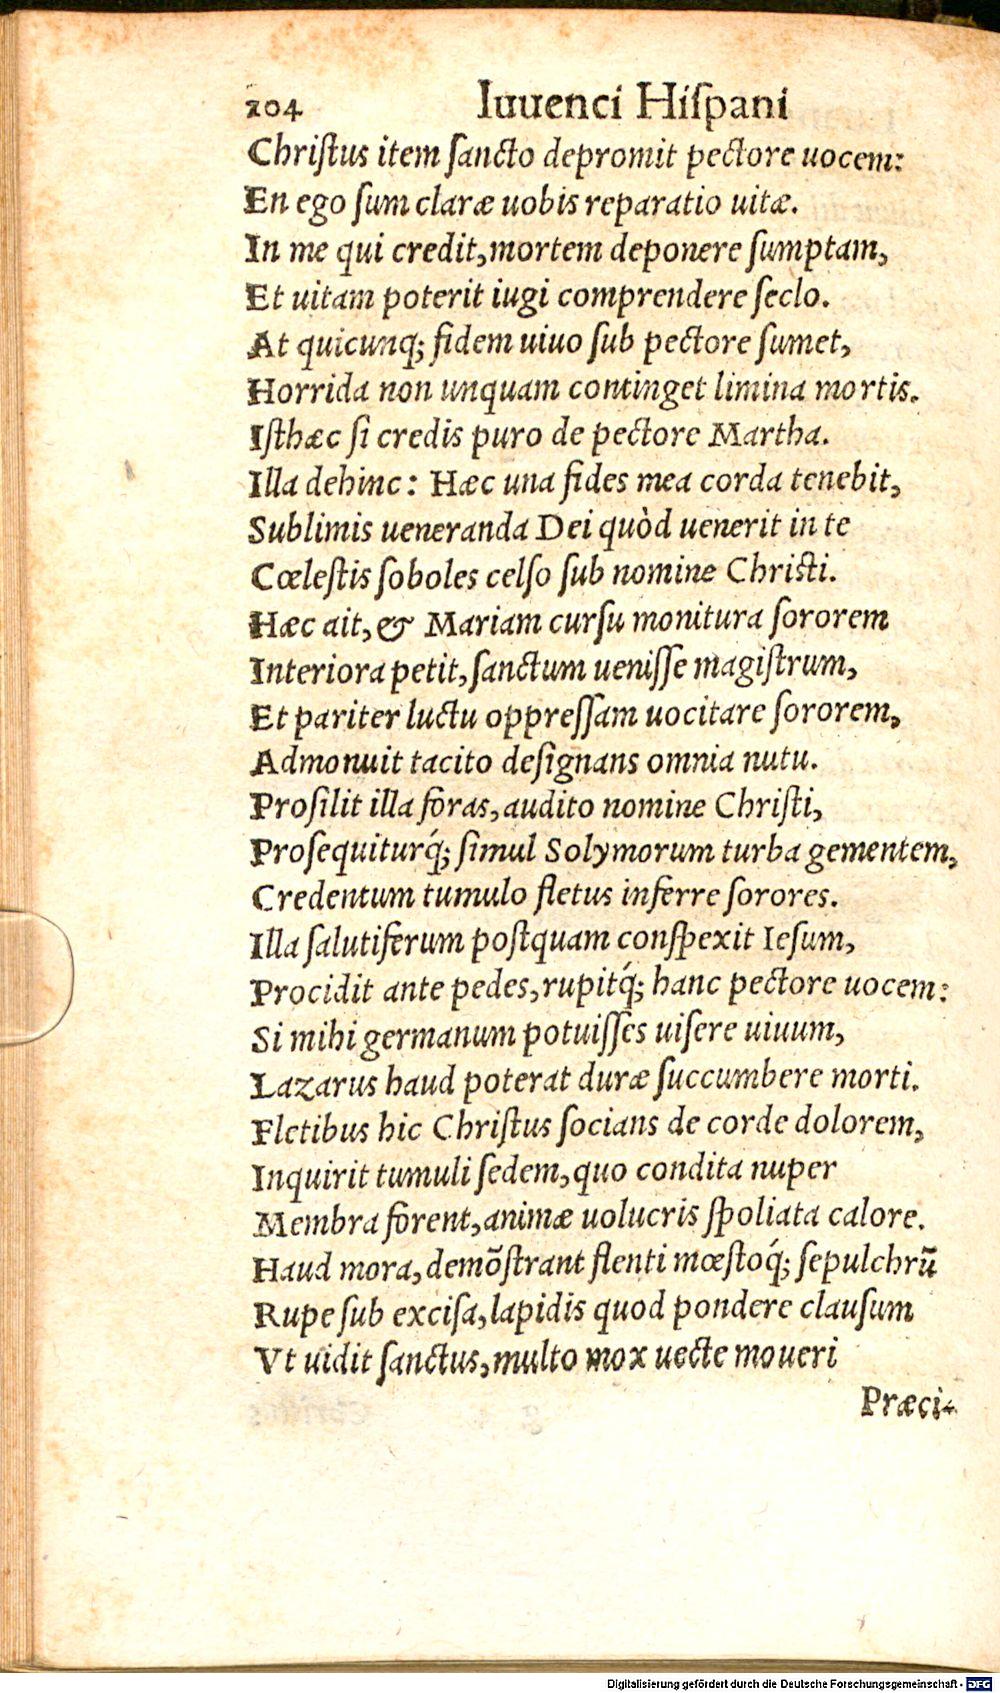 204 Iuuenci Hiſpani
Chriſtus item ſancto depromit pectore uocem:
En ego ſum claræ uobis reparatio uitæ.
In me qui credit, mortem deponere ſumptam,
Et uitam poterit iugi comprendere ſeclo.
At quicunq; fidem uiuo ſub pectore ſumet,
Horrida non unquam continget limina mortis.
Iſthæc ſi credis puro de pectore Martha.
Illa dehinc: Hæc una fides mea corda tenebit,
Sublimis ueneranda Dei quòd uenerit in te
Cœleſtis ſoboles celſo ſub nomine Chriſti.
Hæc ait, & Mariam curſu monitura ſororem
Interiora petit, ſanctum ueniſſe magiſtrum,
Et pariter luctu oppreſſam uocitare ſororem,
Admonuit tacito deſignans omnia nutu.
Proſilit illa foras, audito nomine Chriſti,
Proſequiturq́; ſimul Solymorum turba gementem,
Credentum tumulo fletus inferre ſorores.
Illa ſalutiferum poſtquam conſpexit Ieſum,
Procidit ante pedes, rupitq́; hanc pectore uocem:
Si mihi germanum potuiſſes uiſere uiuum,
Lazarus haud poterat duræ ſuccumbere morti.
Fletibus hic Chriſtus ſocians de corde dolorem,
Inquirit tumuli ſedem, quo condita nuper
Membra forent, animæ uolucris ſpoliata calore.
Haud mora, demõſtrant flenti mœſtoq́; ſepulchrũ
Rupe ſub exciſa, lapidis quod pondere clauſum
Vt uidit ſanctus, multo mox uecte moueri
Præci-
Digitalisierung gefördert durch die Deutsche Forschungsgemeinschaft - DFG